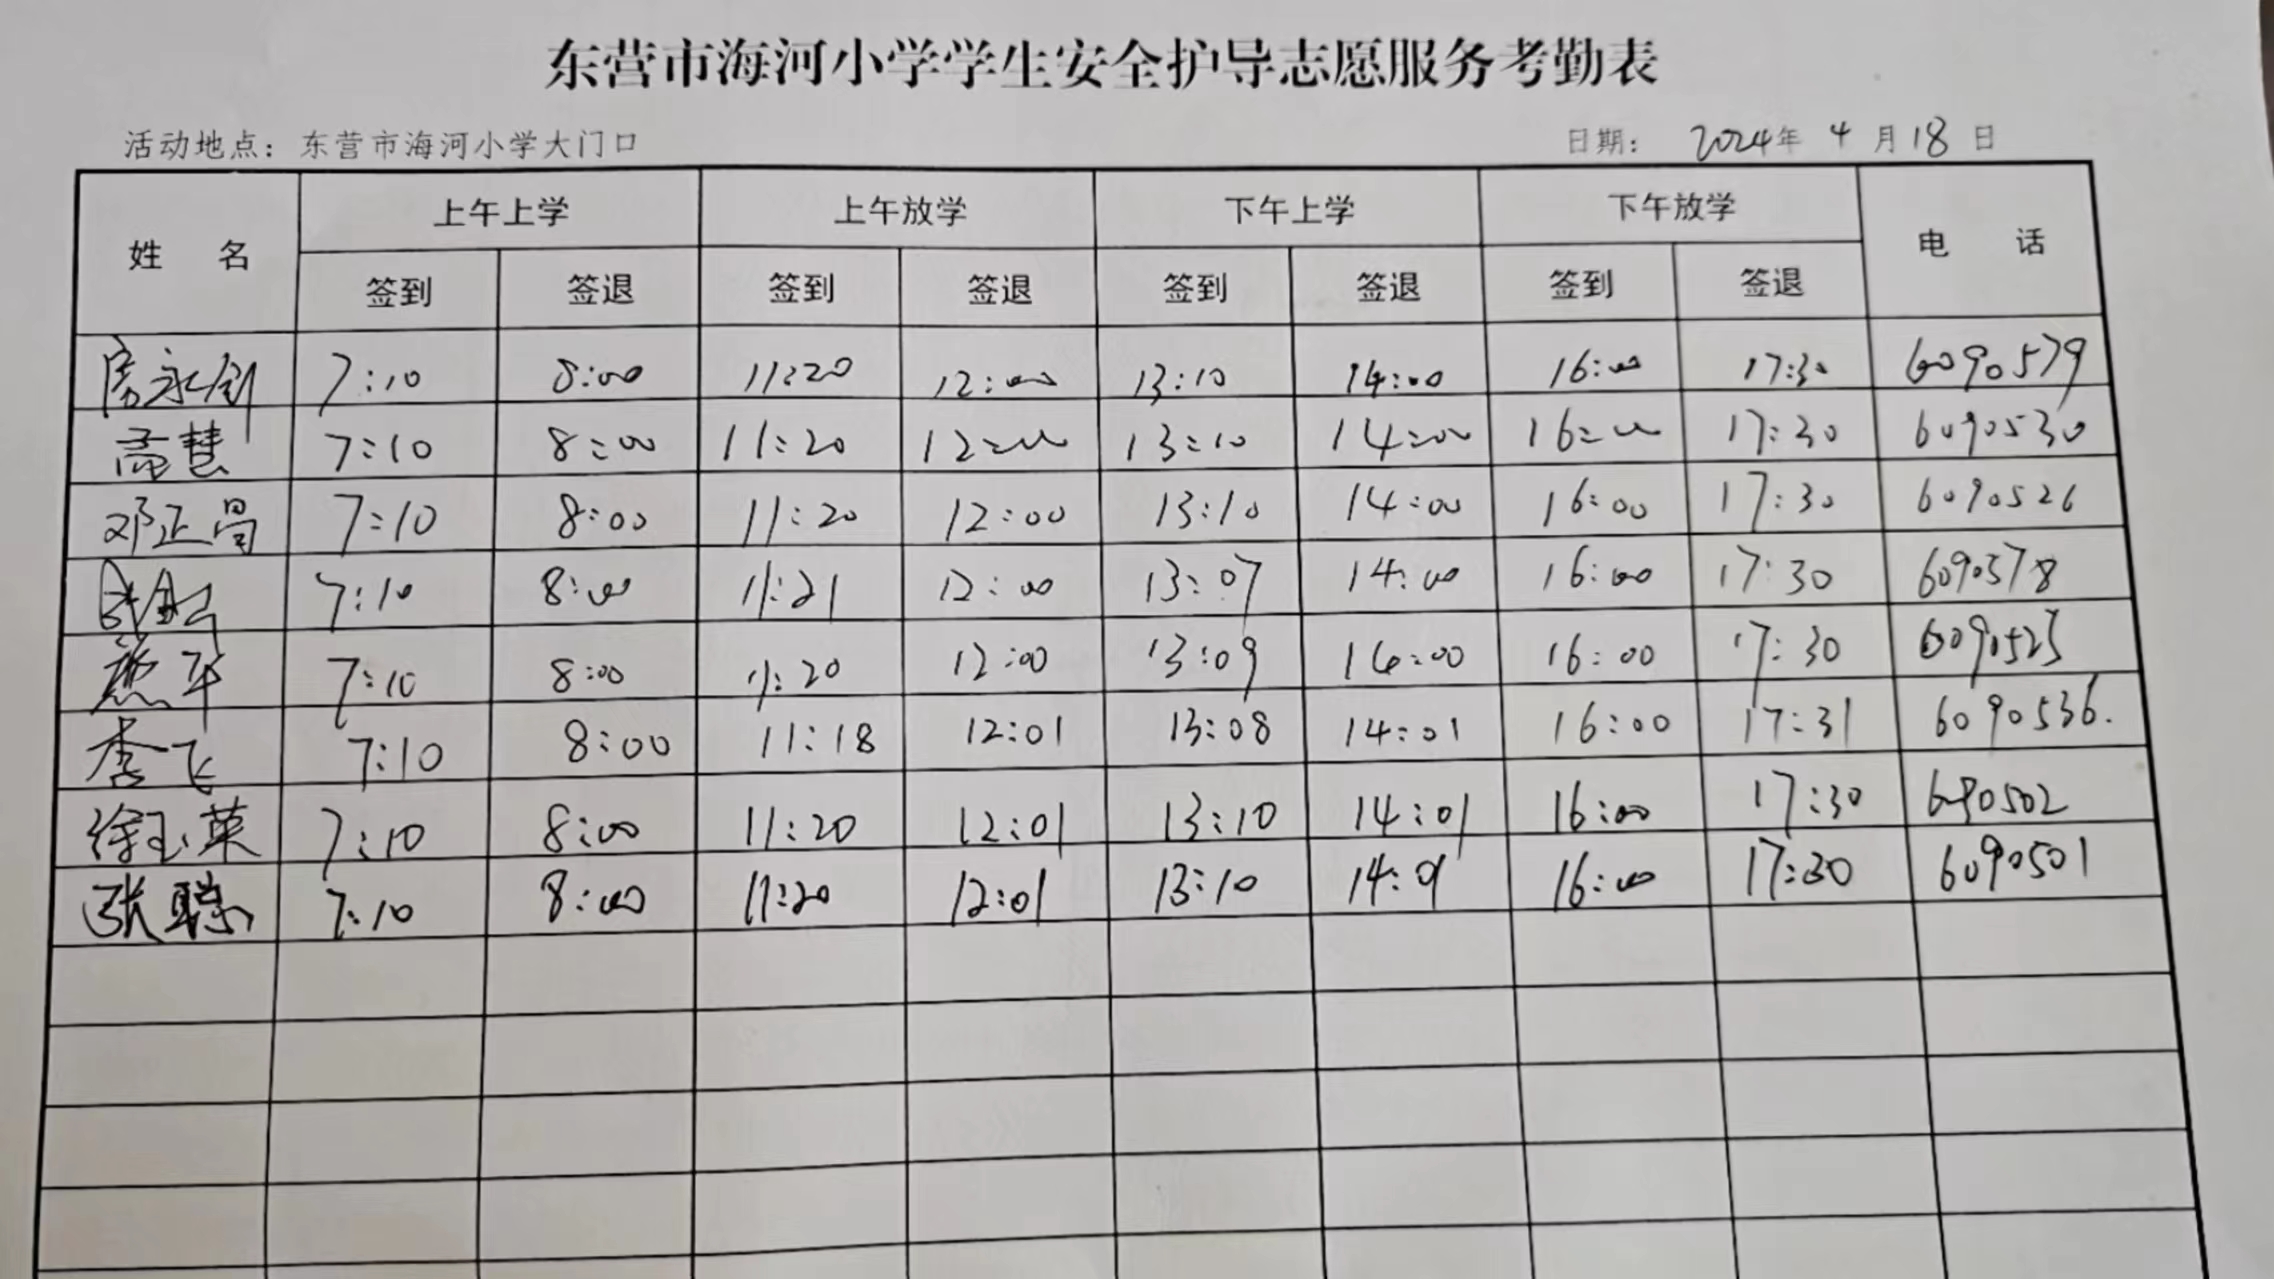 东营市海河小学学生安全护导志愿服务考勤表
活动地点：东营市海河小学大门口 日期： 2024年 4 月 18 日
姓 名 上午上学 上午放学 下午上学 下午放学 电 话
签到 签退 签到 签退 签到 签退 签到 签退
房永剑 7:10 8:00 11:20 12:00 13:10 14:00 16:00 17:30 6090579
高慧 7:10 8:00 11:20 12:00 13:10 14:00 16:00 17:30 6090530
邓正昌 7:10 8:00 11:20 12:00 13:10 14:00 16:00 17:30 6090526
7:10 8:00 11:21 12:00 13:07 14:00 16:00 17:30 6090578
燕华 7:10 8:00 11:20 12:00 13:09 14:00 16:00 17:30 6090523
李飞 7:10 8:00 11:18 12:01 13:08 14:01 16:00 17:31 6090536.
徐玉英 7:10 8:00 11:20 12:01 13:10 14:01 16:00 17:30 6090502
张聪 7:10 8:00 11:20 12:01 13:10 14:01 16:00 17:30 6090501